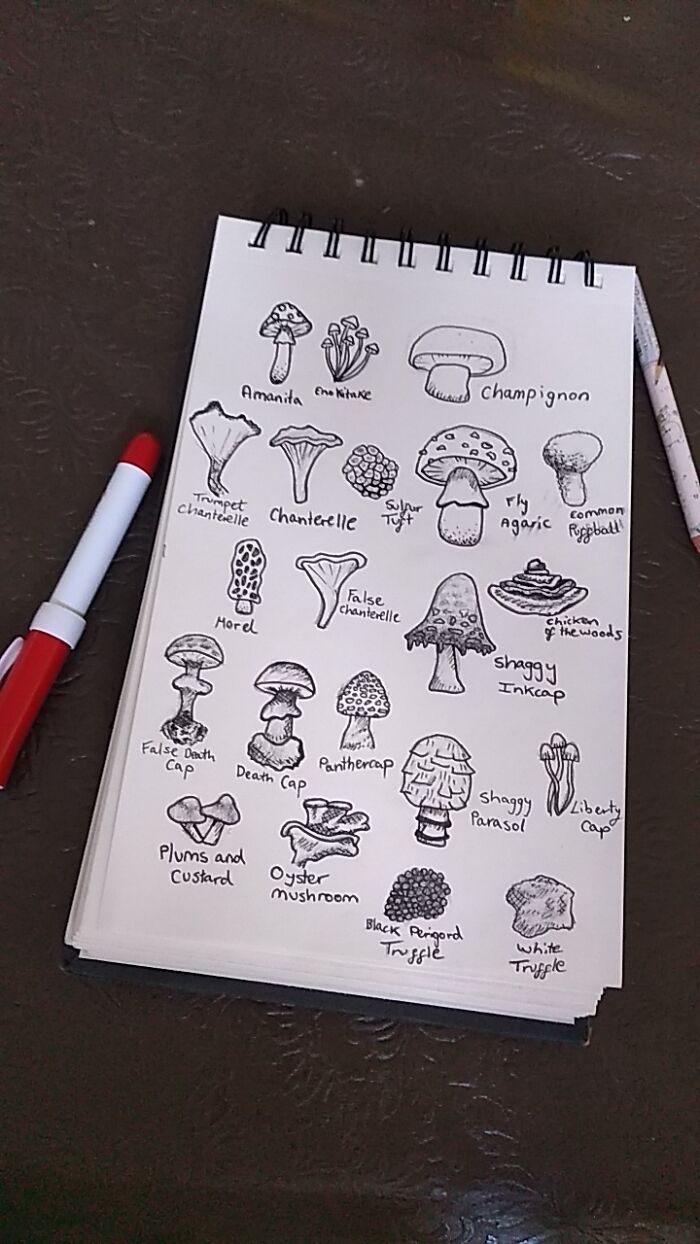 Amanita
Enokitake
Champignon
Trumpet
Chanterelle
Chanterelle
Sulfur
Tuft
Fly
Agaric
common
Puffball
Morel
False
chanterelle
chicken
of the woods
Shaggy
Inkcap
False Death
Cap
Death Cap
Panthercap
Shaggy
Parasol
Liberty
Cap
Plums and
Custard
Oyster
mushroom
Black Perigord
Truffle
White
Truffle